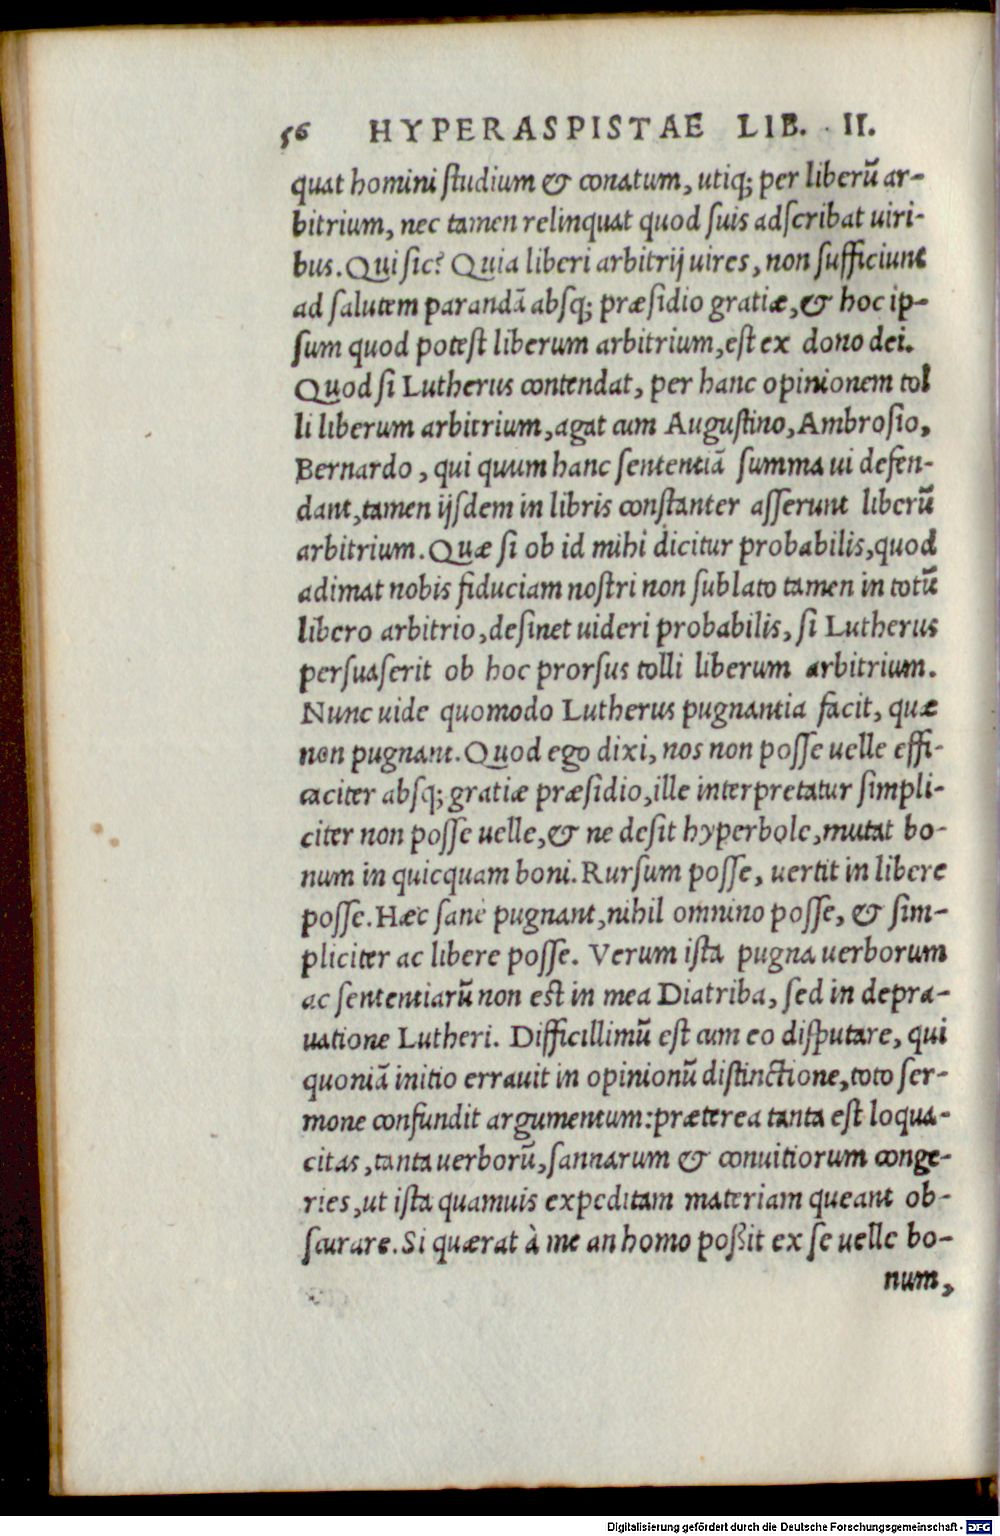 56 HYPERASPISTAE LIB. II.
quat homini ſtudium & conatum, utiq; per liberũ ar-
bitrium, nec tamen relinquat quod ſuis adſcribat uiri-
bus. Qui ſic? Quia liberi arbitrij uires, non ſufficiunt
ad ſalutem parandã abſq; præſidio gratiæ, & hoc ip-
ſum quod poteſt liberum arbitrium, eſt ex dono dei.
Quod ſi Lutherus contendat, per hanc opinionem tol
li liberum arbitrium, agat cum Auguſtino, Ambroſio,
Bernardo, qui quum hanc ſententiã ſumma ui defen-
dant, tamen ijſdem in libris conſtanter aſſerunt liberũ
arbitrium. Quæ ſi ob id mihi dicitur probabilis, quod
adimat nobis fiduciam noſtri non ſublato tamen in totũ
libero arbitrio, deſinet uideri probabilis, ſi Lutherus
perſuaſerit ob hoc prorſus tolli liberum arbitrium.
Nunc uide quomodo Lutherus pugnantia facit, quæ
non pugnant. Quod ego dixi, nos non poſſe uelle effi-
caciter abſq; gratiæ præſidio, ille interpretatur ſimpli-
citer non poſſe uelle, & ne deſit hyperbole, mutat bo-
num in quicquam boni. Rurſum poſſe, uertit in libere
poſſe. Hæc ſanè pugnant, nihil omnino poſſe, & ſim-
pliciter ac libere poſſe. Verum iſta pugna uerborum
ac ſententiarũ non eſt in mea Diatriba, ſed in depra-
uatione Lutheri. Difficillimũ eſt cum eo diſputare, qui
quoniã initio errauit in opinionũ diſtinctione, toto ſer-
mone confundit argumentum: præterea tanta eſt loqua-
citas, tanta uerborũ, ſannarum & conuitiorum conge-
ries, ut iſta quamuis expeditam materiam queant ob-
ſcurare. Si quærat à me an homo poßit ex ſe uelle bo-
num,
Digitalisierung gefördert durch die Deutsche Forschungsgemeinschaft - DFG